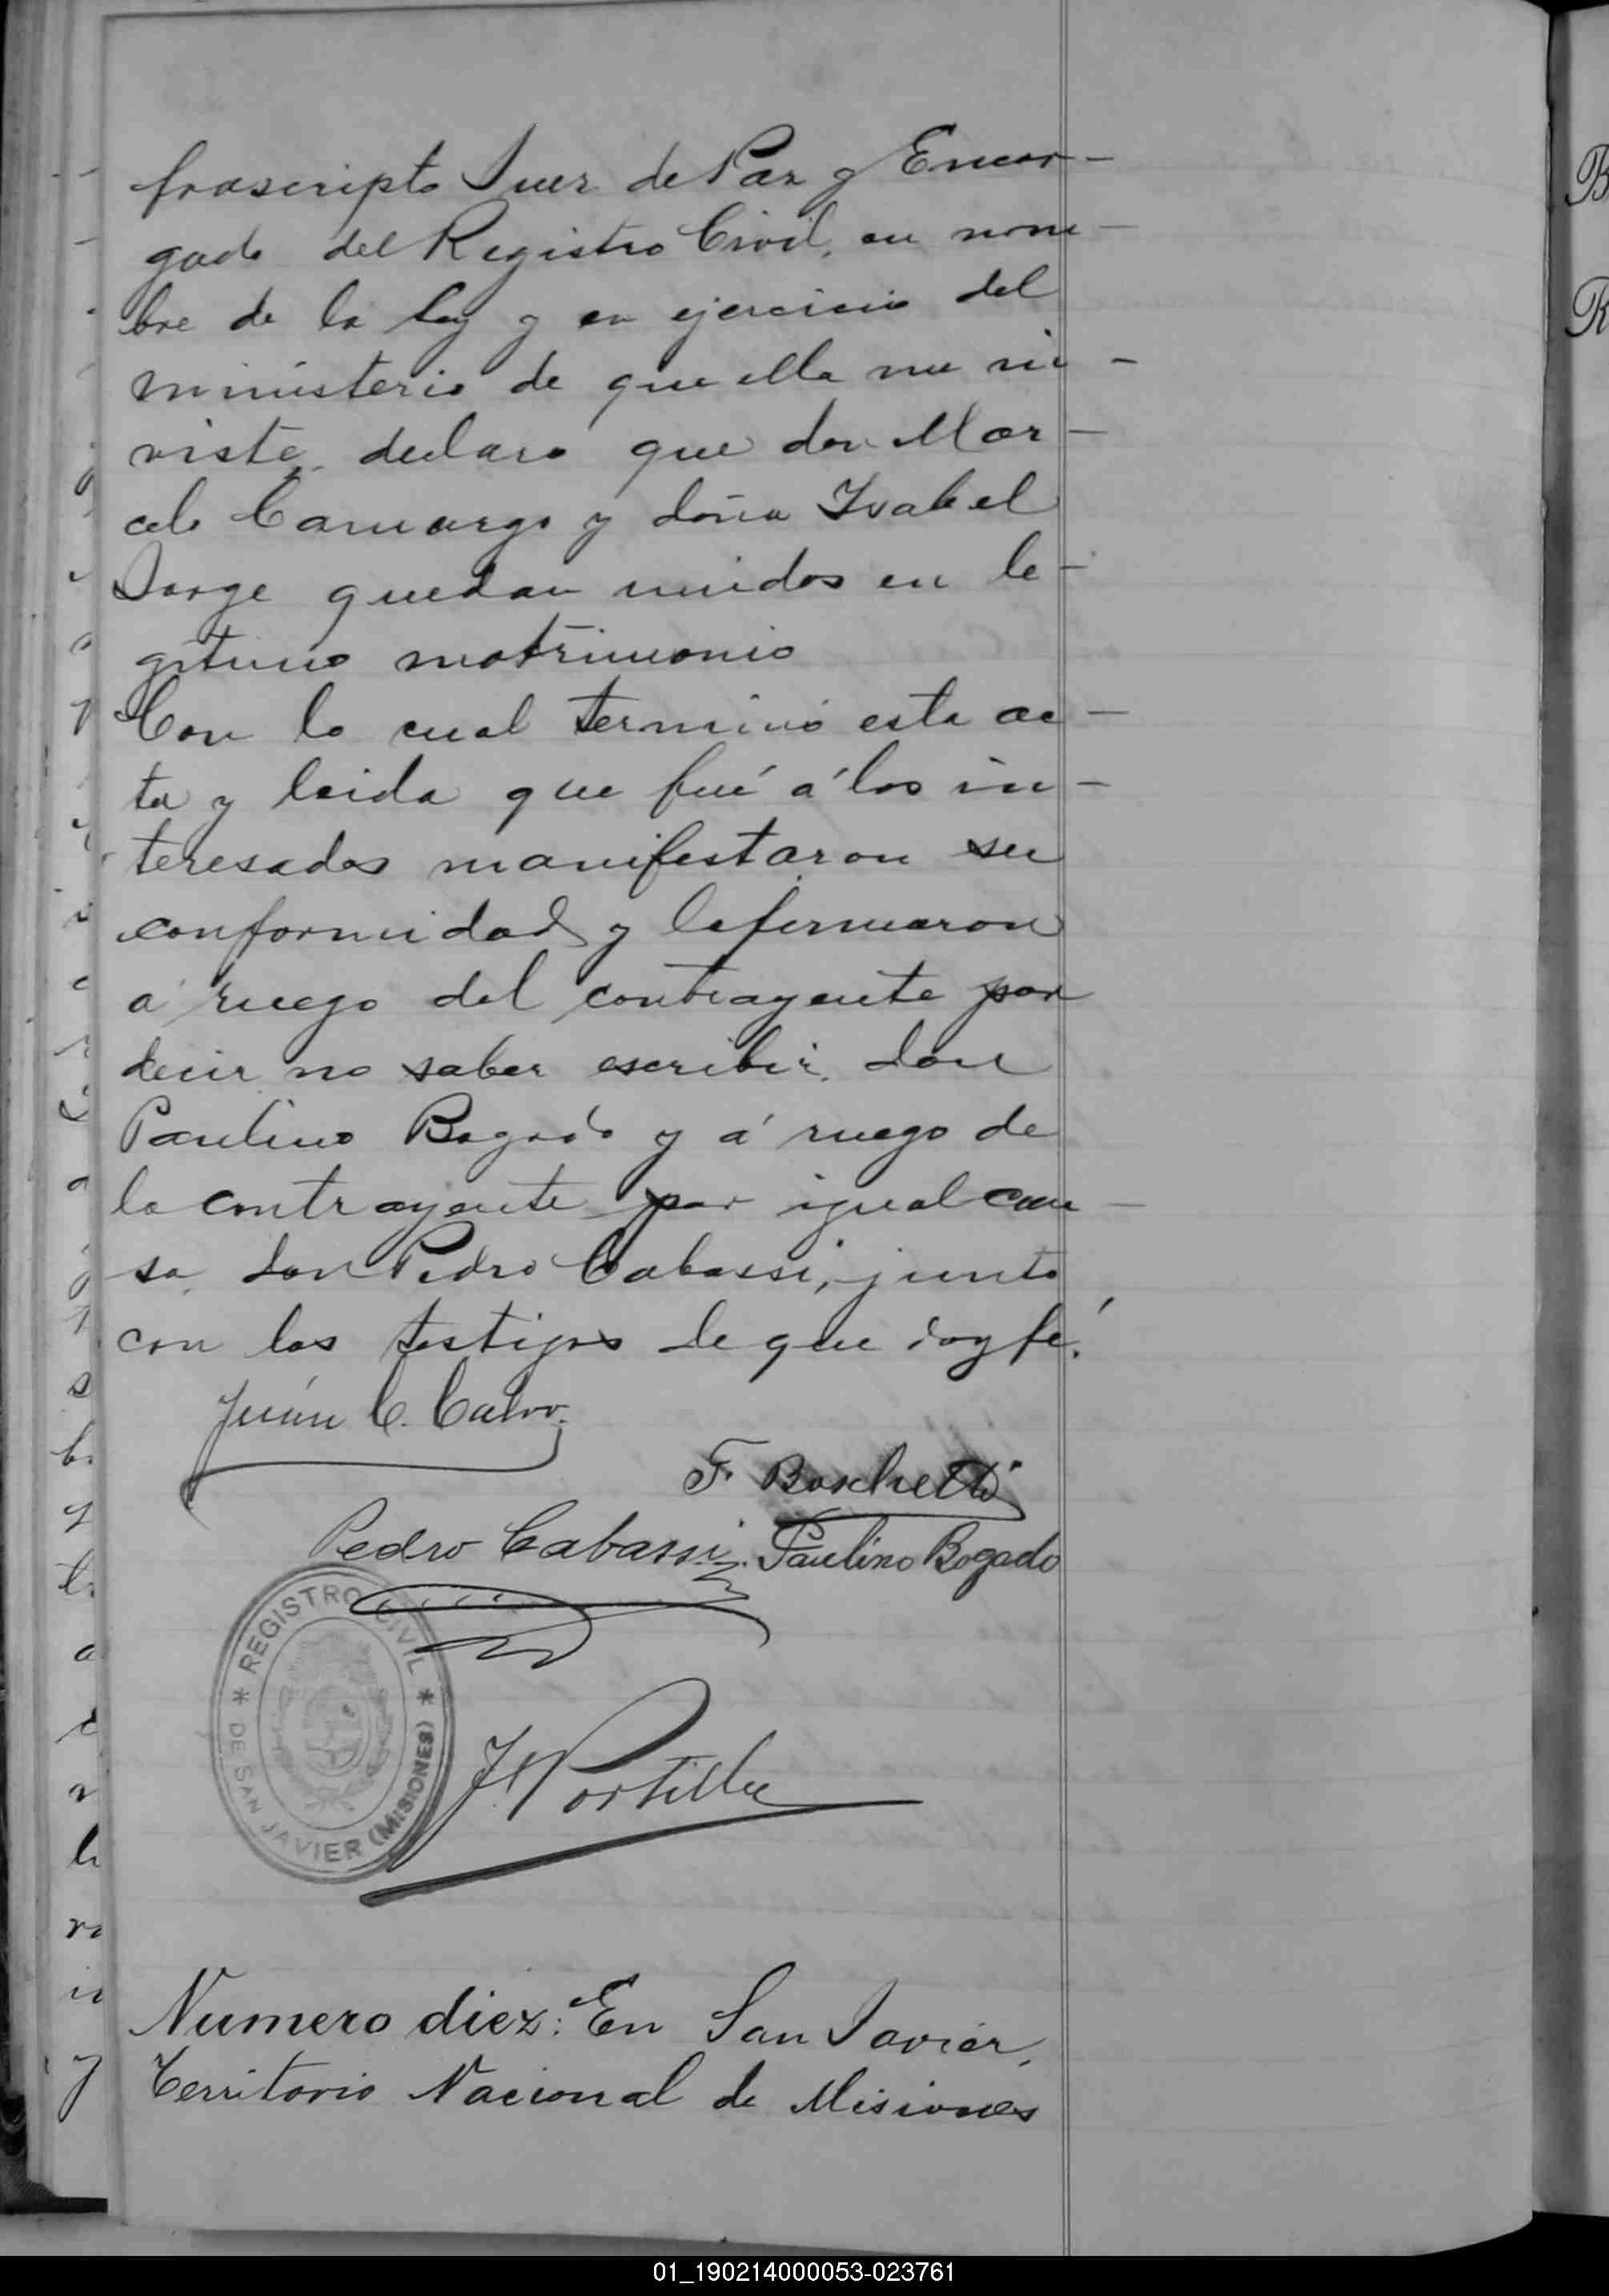 frascripto Juez de Paz y Encar-
gado del Registro Civil, en nom-
bre de la ley y en ejercicio del
ministerio de que ella me in-
viste, declaro que don Mar-
celo Camargo y doña Isabel
Jorge quedan unidos en le-
gitimo matrimonio
Con lo cual terminó esta ac-
ta y leida que fué á los in-
teresados manifestaron su
conformidad y la firmaron
á ruego del contrayente por
decir no saber escribir, don
Paulino Bogado y á ruego de
la contrayente por igual cau-
sa, don Pedro Cabassi, junto
con los testigos de que doy fé.
Juan C. Calvo.
F. Boschetti
Pedro Cabassi. Paulino Bogado
REGISTRO CIVIL
* DE SAN JAVIER (MISIONES) *
J. Portilla
Numero diez: En San Javier,
Territorio Nacional de Misiones
B
R
01_190214000053-023761